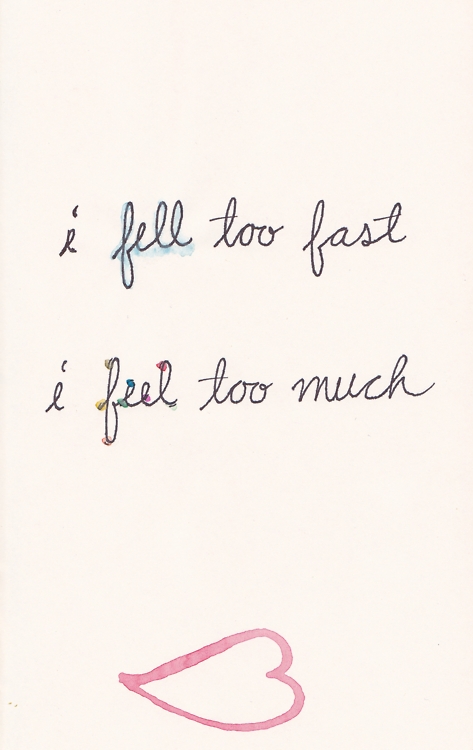 i fell too fast
i feel too much